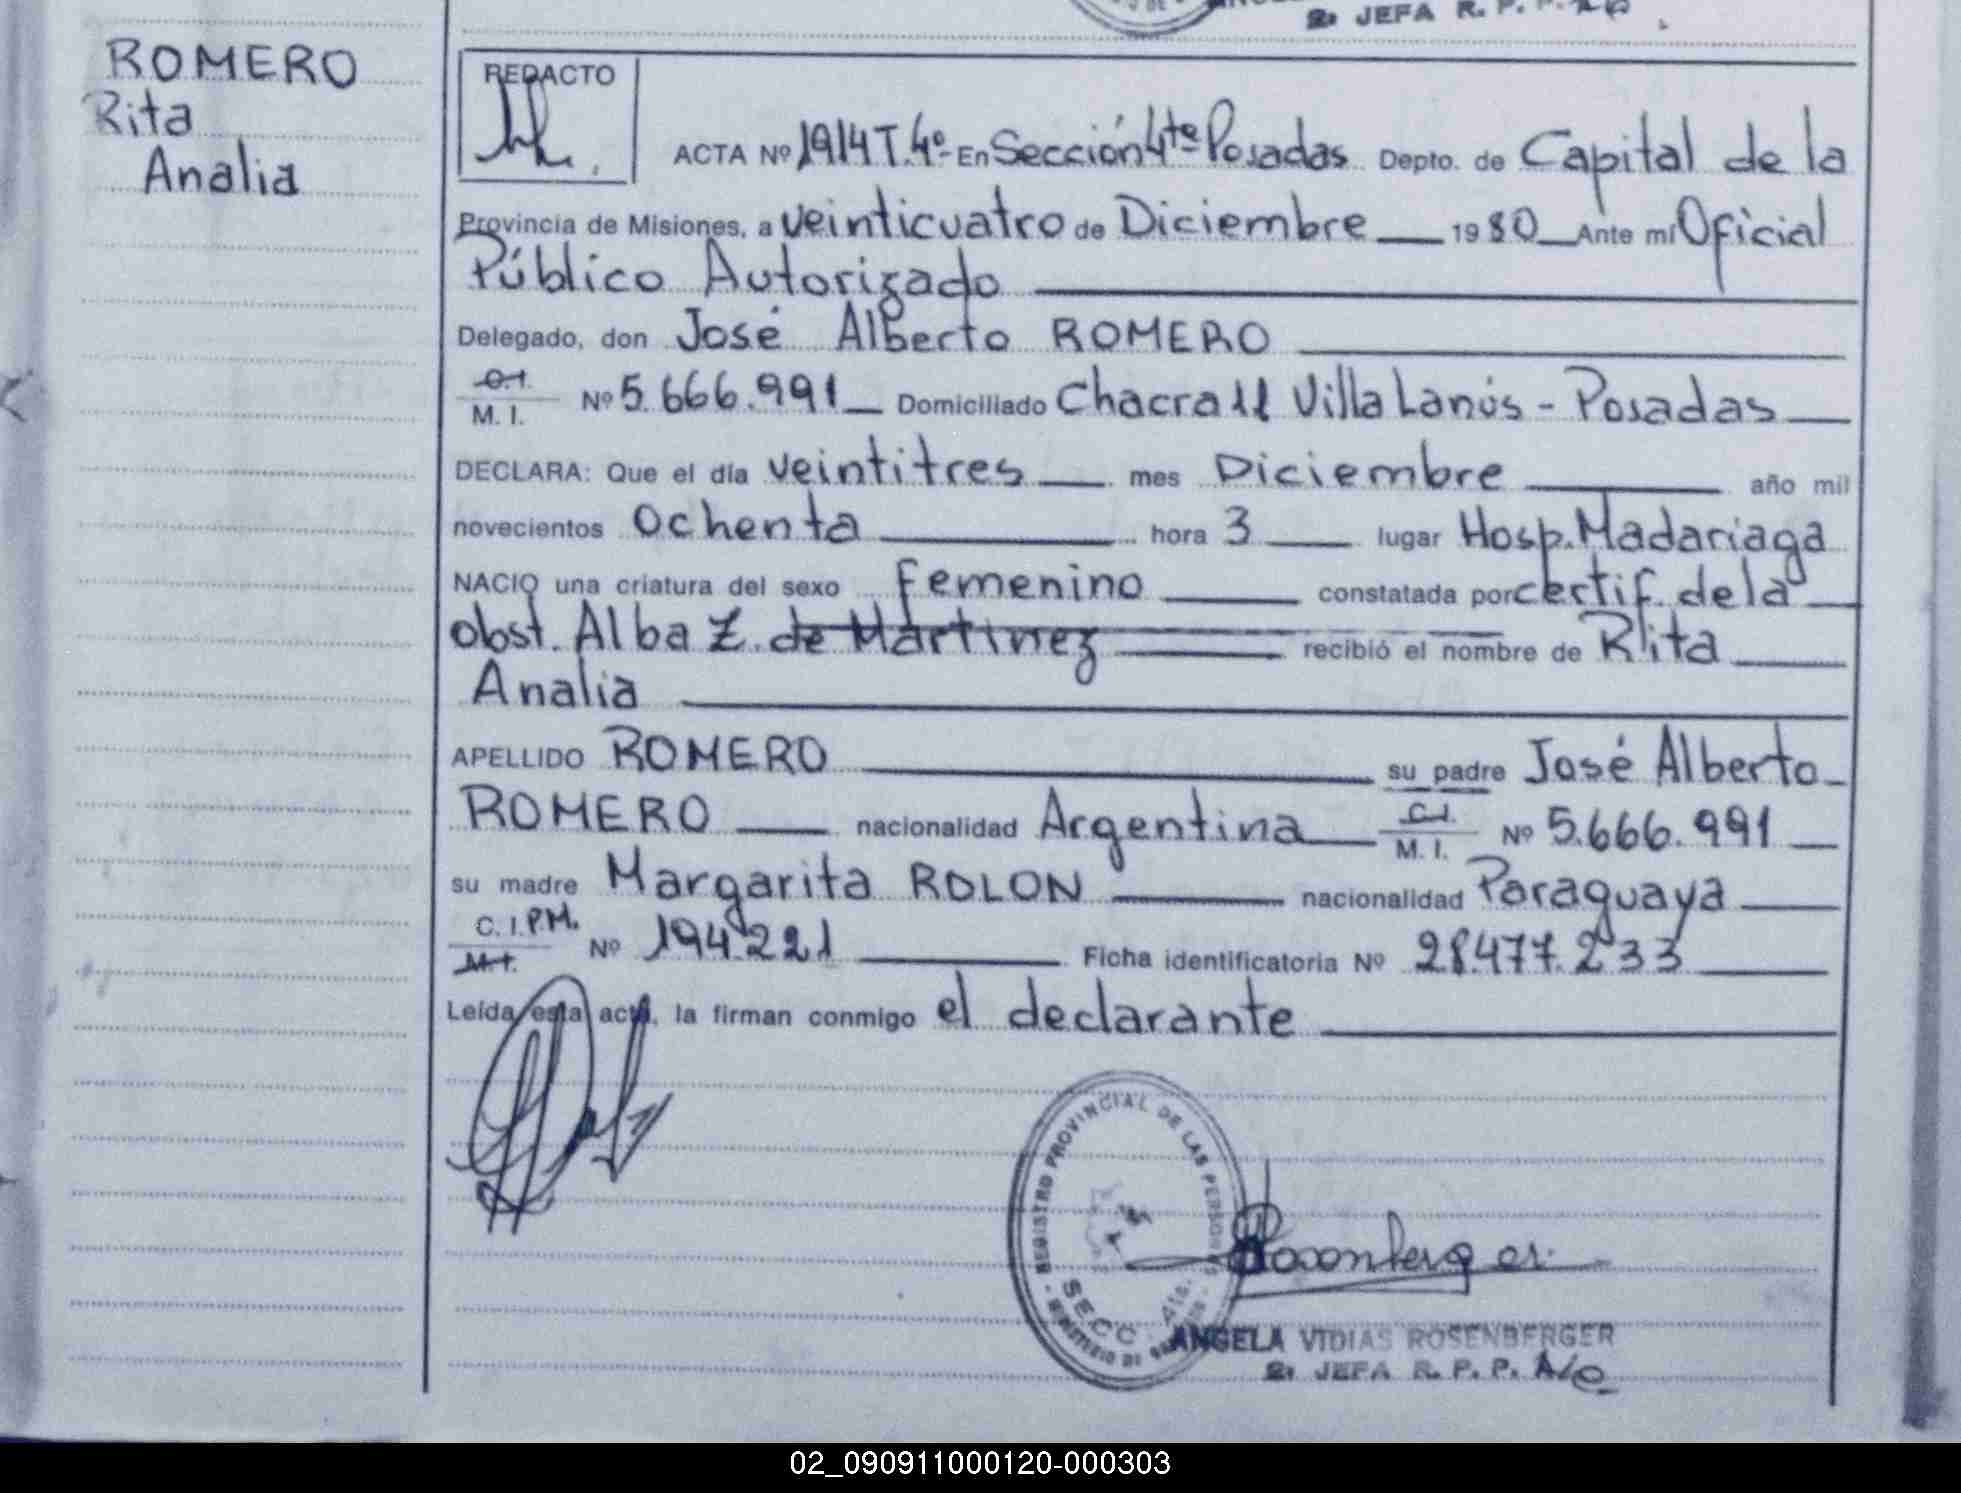 2ª JEFA R. P. P. A/c
ROMERO
Rita
Analia
REDACTO
ACTA Nº 1914 T. 4º- En Sección 4ta Posadas Depto. de Capital de la
Provincia de Misiones, a veinticuatro de Diciembre 1980 Ante mí Oficial
Público Autorizado
Delegado, don José Alberto ROMERO
C.I.
M. I. Nº 5.666.991 Domiciliado Chacra 11 Villa Lanús - Posadas
DECLARA: Que el día veintitres mes Diciembre año mil
novecientos Ochenta hora 3 lugar Hosp. Madariaga
NACIO una criatura del sexo Femenino constatada por certif. de la
obst. Alba Z. de Martinez recibió el nombre de Rita
Analia
APELLIDO ROMERO su padre José Alberto
ROMERO nacionalidad Argentina C.I. M. I. Nº 5.666.991
su madre Margarita ROLON nacionalidad Paraguaya
C. I. P.M. M.I. Nº 194.221 Ficha identificatoria Nº 28.477.233
Leída esta acta, la firman conmigo el declarante
REGISTRO PROVINCIAL DE LAS PERSONAS
SECC. 4ta.
MINISTERIO DE
Rosenberger
ANGELA VIDIAS ROSENBERGER
2ª JEFA R. P. P. A/c
02_090911000120-000303